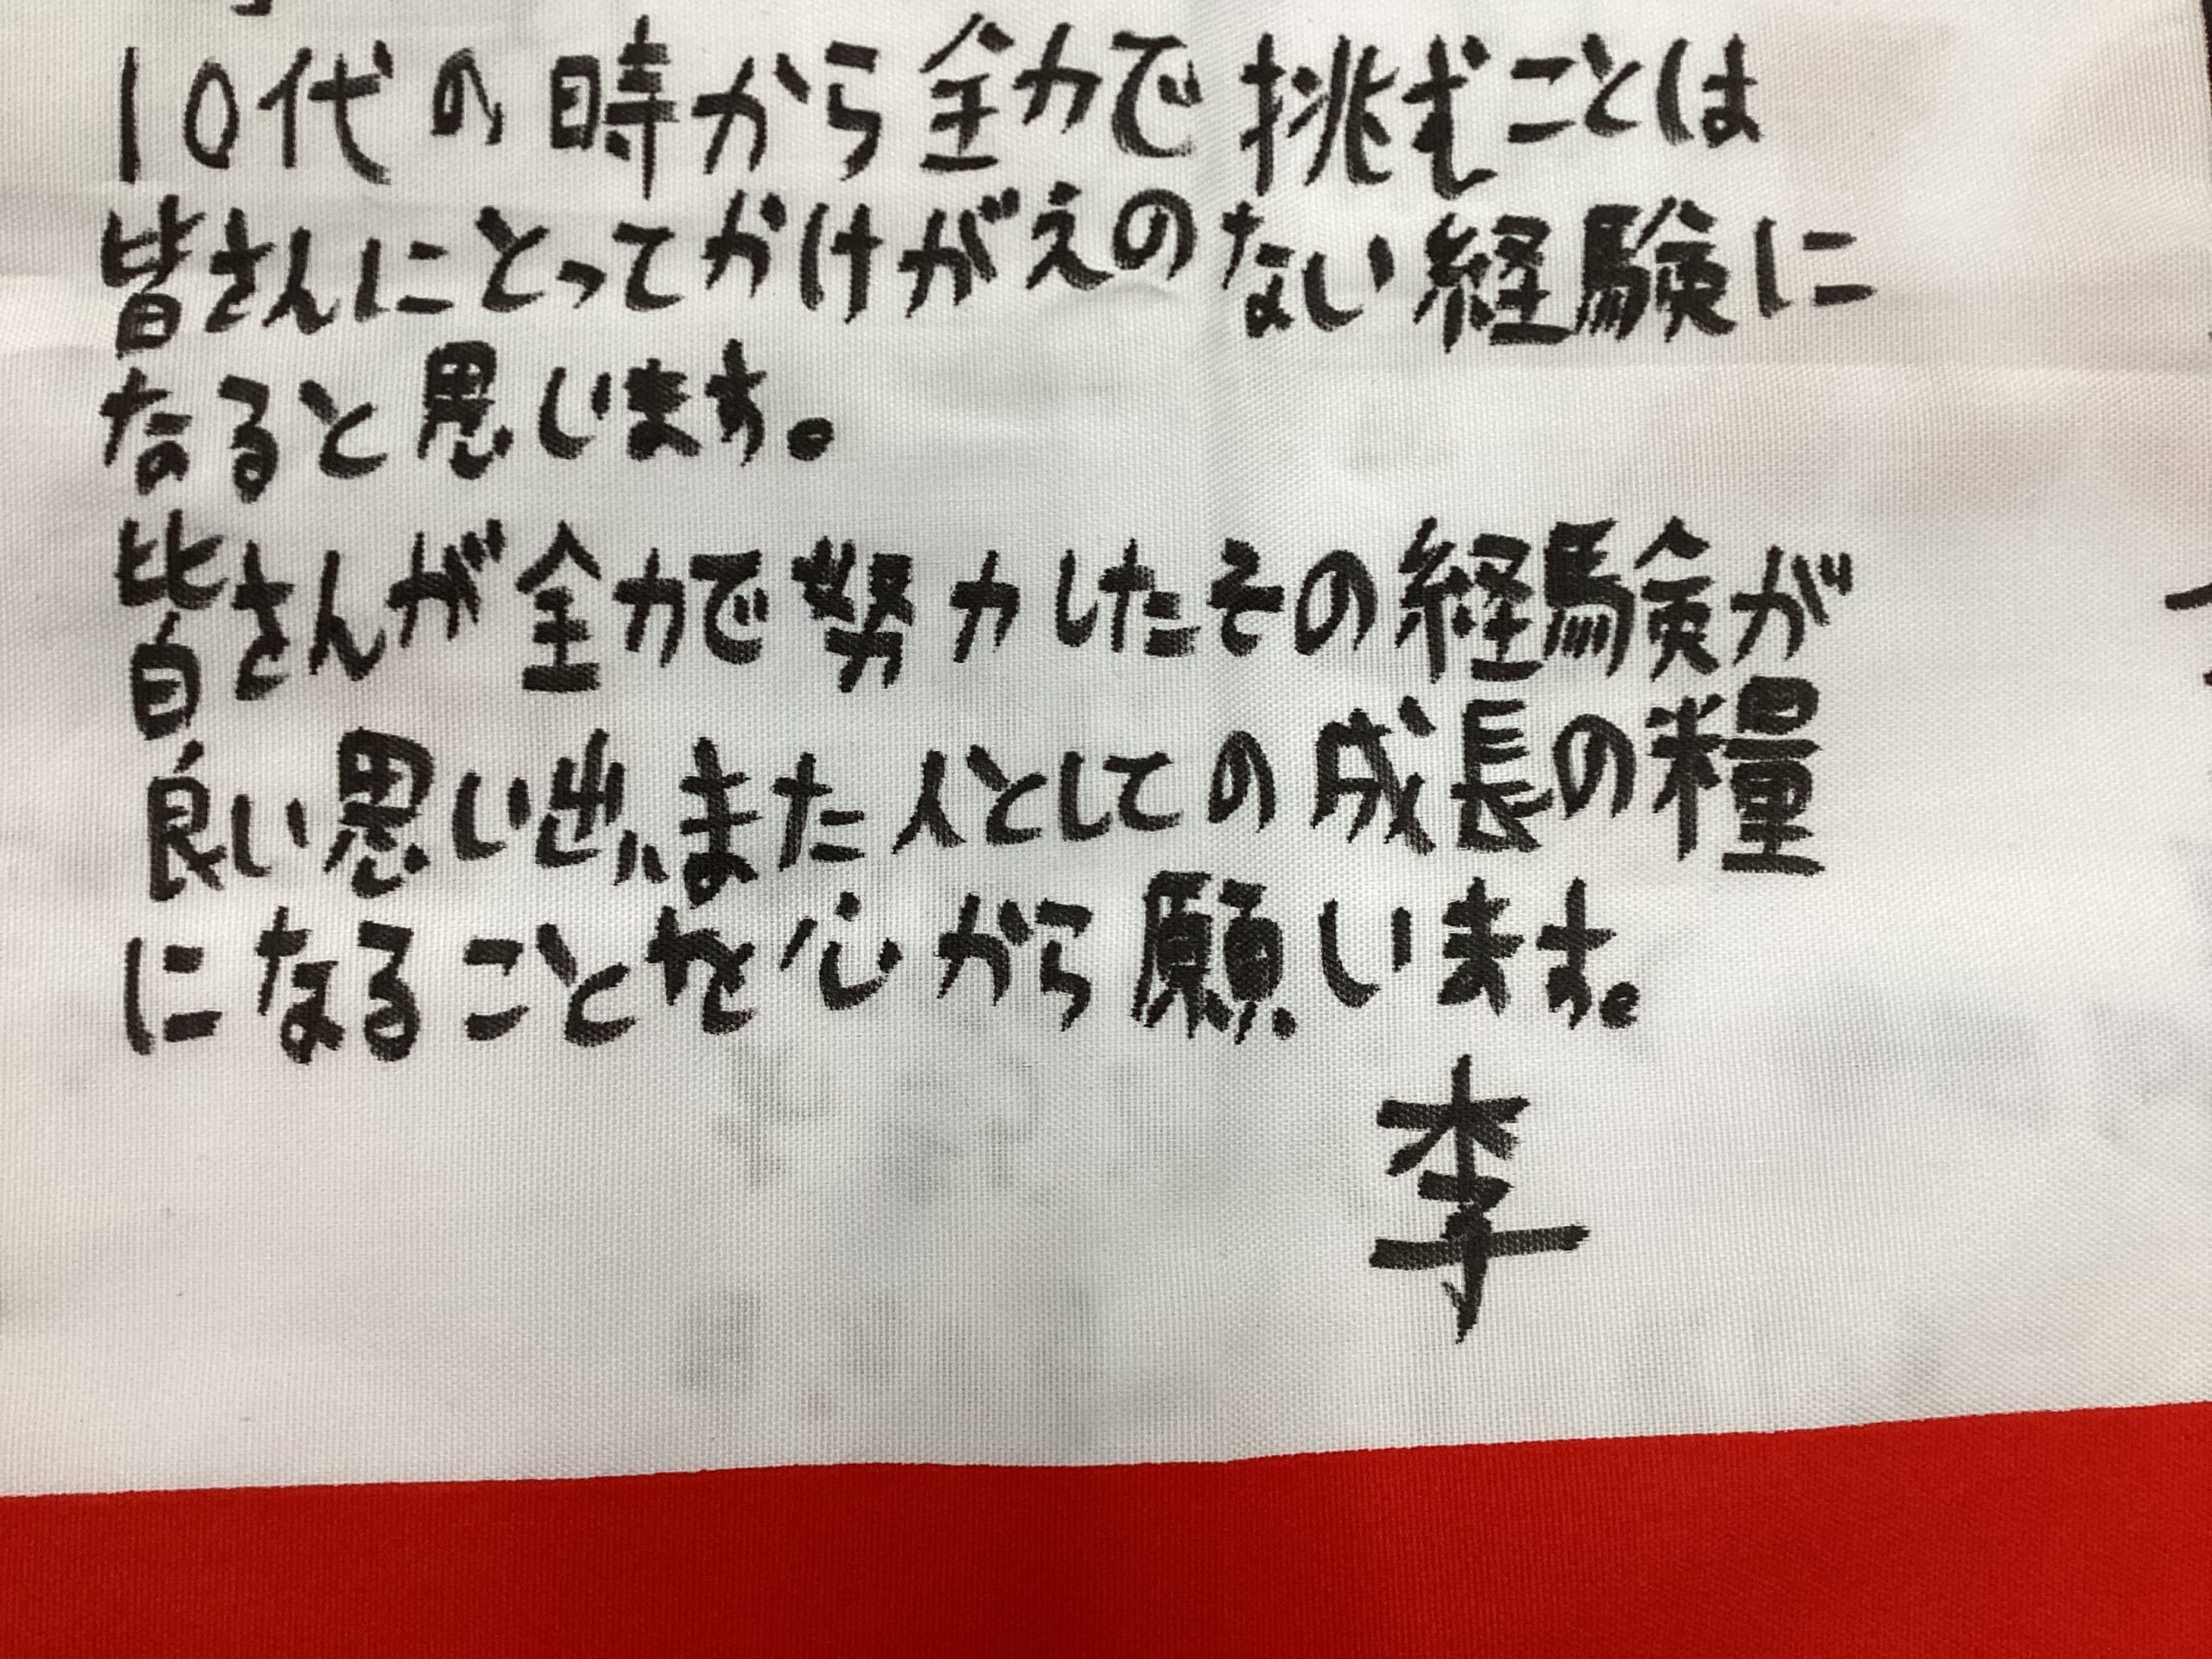 10代の時から全力で挑むことは
皆さんにとってかけがえのない経験に
なると思います。
皆さんが全力で努力したその経験が
良い思い出、また人としての成長の糧
になることを心から願います。
李